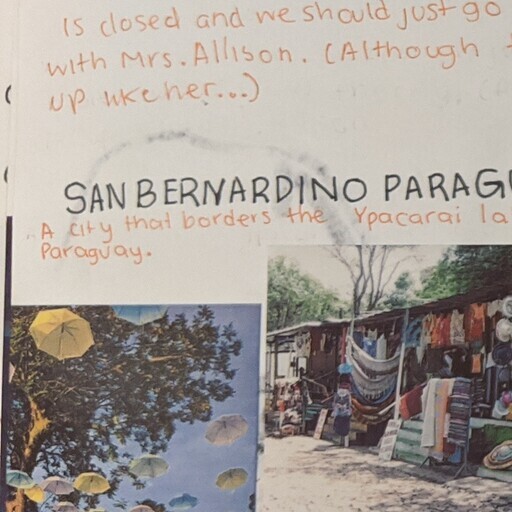 is closed and we should just go
with Mrs. Allison. (Although
up like her...)
SAN BERNARDINO PARAG
A city that borders the Ypacarai la
Paraguay.